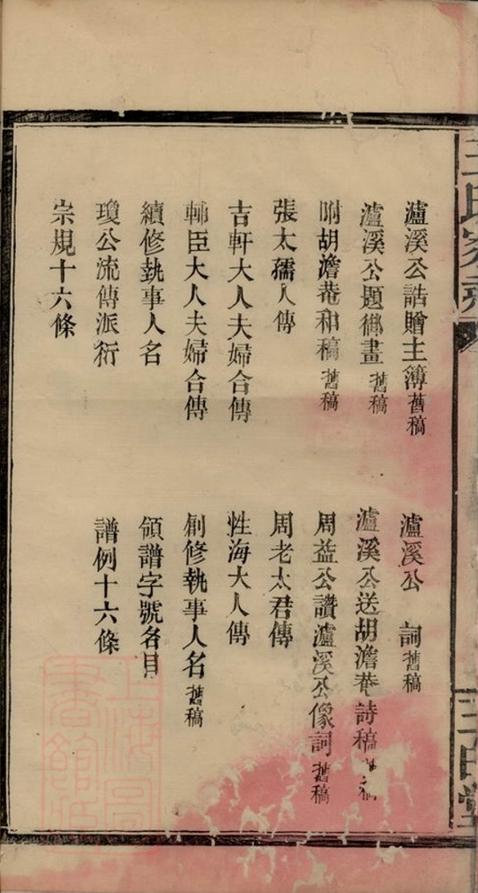 瀘溪公誥贈主簿舊稿
瀘溪公　詞舊稿
瀘溪公題御畫舊稿
瀘溪公送胡澹菴詩稿
附胡澹菴和稿舊稿
周益公讚瀘溪公像詞舊稿
張太孺人傳
周老太君傳
吉軒大人夫婦合傳
性海大人傳
輔臣大人夫婦合傳
創修執事人名舊稿
續修執事人名
領譜字號名目
瓊公流傳派衍
譜例十六條
宗規十六條